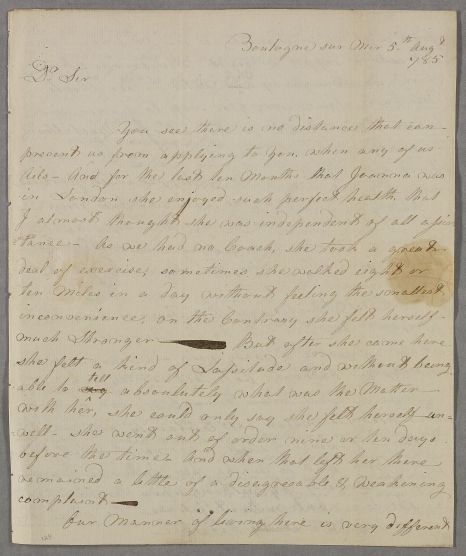 Boulogne sur Mer 5.th Augt
785
Dr Sir
You see there is no distance that can
prevent us from applying to you, when any of us
Ails - And for the last ten Months that Joanna was
in London she enjoyed such perfect health that
I almost thought she was independent of all assis
tance - As we had no Coach, she took a great
deal of exercise, sometimes she walked eight or
ten Miles in a day without feeling the smallest
inconvenience, on the Contrary she felt herself
much Stronger — But after she came here
she felt a kind of Lassitude and without being
able to tell absolutely what was the Matter
with her, she could only say she felt herself un-
well - she went out of order nine or ten days
before the time And when that left her there
remained a little of a disagreeable & weakening
complaint —
Our Manner of living here is very different